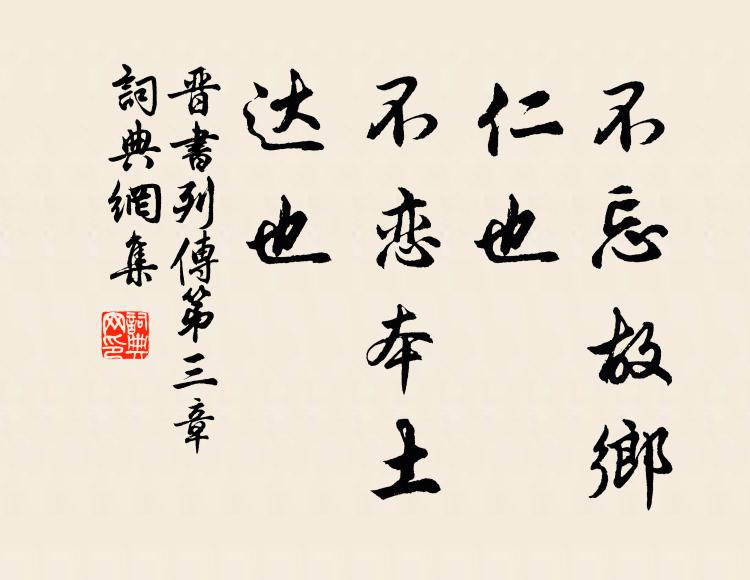 不忘故鄉
仁也
不恋本土
达也
晋書列傳第三章
詞典網集
詞典网印